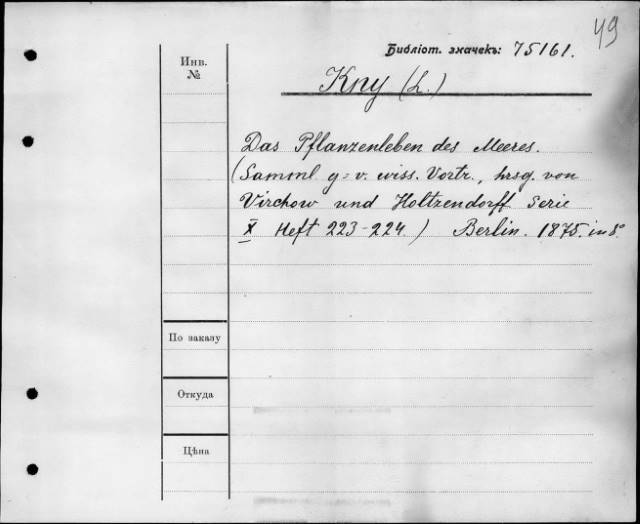 49
Библіот. значекъ: 75161.
Инв.
№
Kny (L.)
Das Pflanzenleben des Meeres.
(Samml. g=v. wiss. Vortr., hrsg. von
Virchow und Holtzendorff Serie
X Heft 223-224.) Berlin. 1875. in 8°
По заказу
Откуда
Цѣна